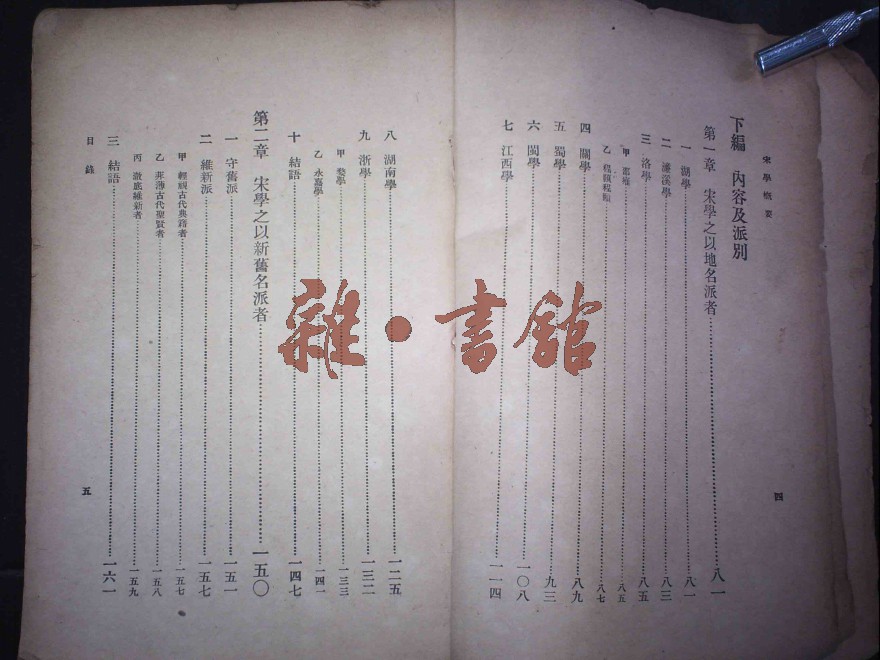 宋學概要
四
下編 內容及派別
第一章 宋學之以地名派者 八一
一 湖學 八一
二 濂溪學 八三
三 洛學 八五
甲 邵雍 八五
乙 程顥程頤 八七
四 關學 八九
五 蜀學 九三
六 閩學 一〇八
七 江西學 一一四
八 湖南學 一二五
九 浙學 一三二
甲 婺學 一三三
乙 永嘉學 一四一
十 結語 一四七
第二章 宋學之以新舊名派者 一五〇
一 守舊派 一五一
二 維新派 一五七
甲 輕視古代典籍者 一五七
乙 菲薄古代聖賢者 一五八
丙 澈底維新者 一五九
三 結語 一六一
目錄
五
雜·書館